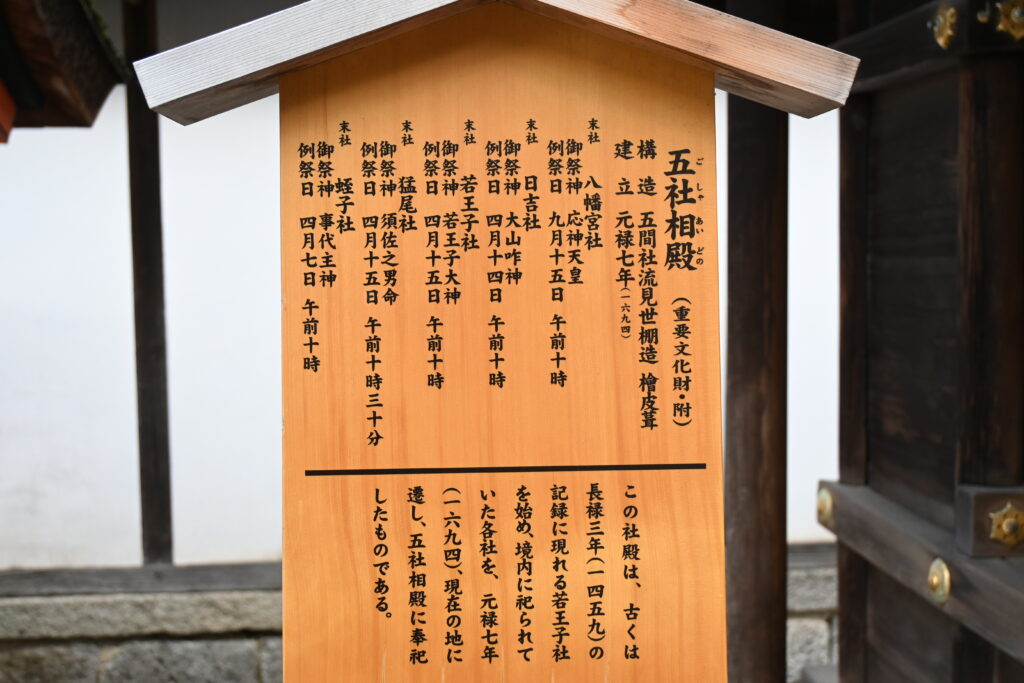 五社相殿 (重要文化財・附)
ごしゃあいどの
構造 五間社流見世棚造 檜皮葺
建立 元禄七年(一六九四)
末社 八幡宮社
御祭神 応神天皇
例祭日 九月十五日 午前十時
末社 日吉社
御祭神 大山咋神
例祭日 四月十四日 午前十時
末社 若王子社
御祭神 若王子大神
例祭日 四月十五日 午前十時
末社 猛尾社
御祭神 須佐之男命
例祭日 四月十五日 午前十時三十分
末社 蛭子社
御祭神 事代主神
例祭日 四月七日 午前十時
この社殿は、古くは
長禄三年(一四五九)の
記録に現れる若王子社
を始め、境内に祀られて
いた各社を、元禄七年
(一六九四)、現在の地に
遷し、五社相殿に奉祀
したものである。